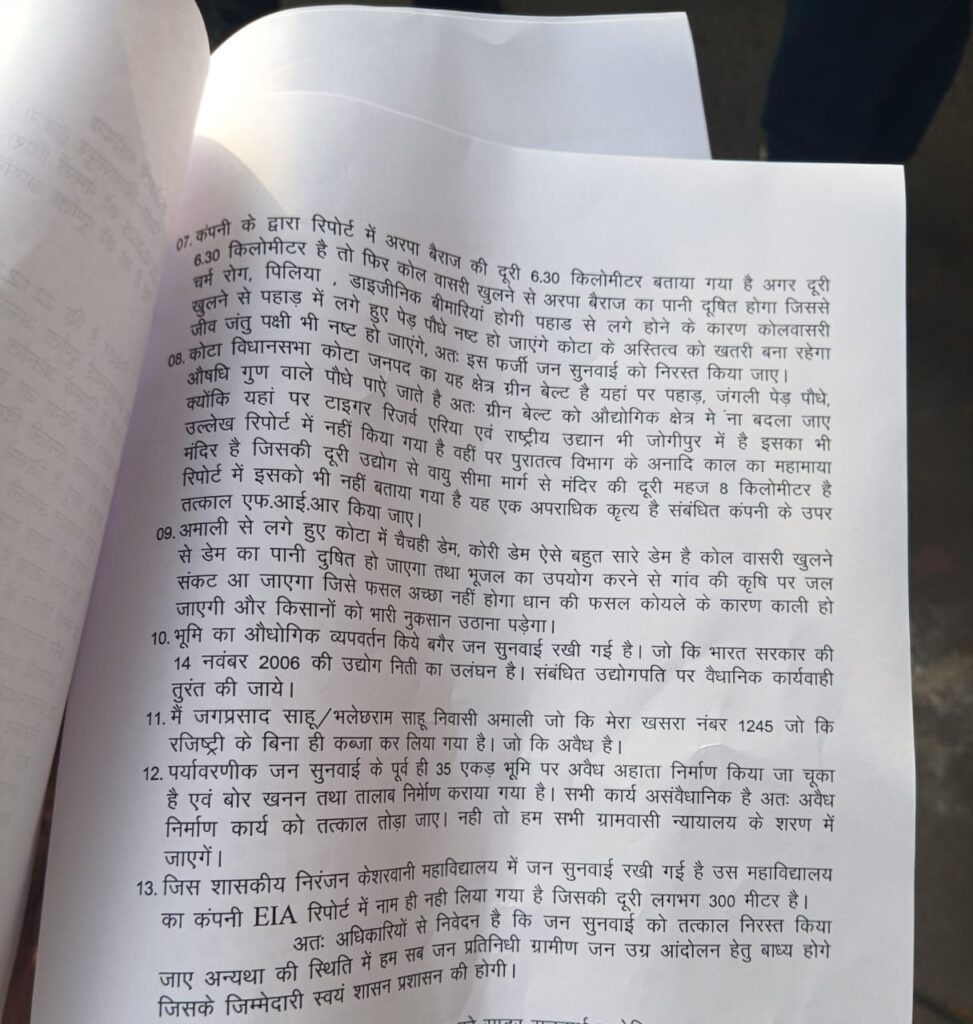 07. कंपनी के द्वारा रिपोर्ट में अरपा बैराज की दूरी 6.30 किलोमीटर बताया गया है अगर दूरी
6.30 किलोमीटर है तो फिर कोल वासरी खुलने से अरपा बैराज का पानी दूषित होगा जिससे
चर्म रोग, पिलिया , डाइजीनिक बीमारियां होगी पहाड से लगे होने के कारण कोलवासरी
खुलने से पहाड़ में लगे हुए पेड़ पौधे नष्ट हो जाएंगे कोटा के अस्तित्व को खतरी बना रहेगा
जीव जंतु पक्षी भी नष्ट हो जाएंगे, अतः इस फर्जी जन सुनवाई को निरस्त किया जाए।
08. कोटा विधानसभा कोटा जनपद का यह क्षेत्र ग्रीन बेल्ट है यहां पर पहाड़, जंगली पेड़ पौधे,
औषधि गुण वाले पौधे पाऐ जाते है अतः ग्रीन बेल्ट को औद्योगिक क्षेत्र मे ना बदला जाए
क्योंकि यहां पर टाइगर रिजर्व एरिया एवं राष्ट्रीय उद्यान भी जोगीपुर में है इसका भी
उल्लेख रिपोर्ट में नहीं किया गया है वहीं पर पुरातत्व विभाग के अनादि काल का महामाया
मंदिर है जिसकी दूरी उद्योग से वायु सीमा मार्ग से मंदिर की दूरी महज 8 किलोमीटर है
रिपोर्ट में इसको भी नहीं बताया गया है यह एक अपराधिक कृत्य है संबंधित कंपनी के उपर
तत्काल एफ.आई.आर किया जाए।
09. अमाली से लगे हुए कोटा में चैचही डेम, कोरी डेम ऐसे बहुत सारे डेम है कोल वासरी खुलने
से डेम का पानी दुषित हो जाएगा तथा भूजल का उपयोग करने से गांव की कृषि पर जल
संकट आ जाएगा जिसे फसल अच्छा नहीं होगा धान की फसल कोयले के कारण काली हो
जाएगी और किसानों को भारी नुकसान उठाना पड़ेगा।
10. भूमि का औधोगिक व्यपवर्तन किये बगैर जन सुनवाई रखी गई है। जो कि भारत सरकार की
14 नवंबर 2006 की उद्योग निती का उलंघन है। संबंधित उद्योगपति पर वैधानिक कार्यवाही
तुरंत की जाये।
11. मैं जगप्रसाद साहू/भलेछराम साहू निवासी अमाली जो कि मेरा खसरा नंबर 1245 जो कि
रजिष्ट्री के बिना ही कब्जा कर लिया गया है। जो कि अवैध है।
12. पर्यावरणीक जन सुनवाई के पूर्व ही 35 एकड़ भूमि पर अवैध अहाता निर्माण किया जा चूका
है एवं बोर खनन तथा तालाब निर्माण कराया गया है। सभी कार्य असंवैधानिक है अतः अवैध
निर्माण कार्य को तत्काल तोड़ा जाए। नही तो हम सभी ग्रामवासी न्यायालय के शरण में
जाएगें।
13. जिस शासकीय निरंजन केशरवानी महाविद्यालय में जन सुनवाई रखी गई है उस महाविद्यालय
का कंपनी EIA रिपोर्ट में नाम ही नही लिया गया है जिसकी दूरी लगभग 300 मीटर है।
अतः अधिकारियों से निवेदन है कि जन सुनवाई को तत्काल निरस्त किया
जाए अन्यथा की स्थिति में हम सब जन प्रतिनिधी ग्रामीण जन उग्र आंदोलन हेतु बाध्य होगे
जिसके जिम्मेदारी स्वयं शासन प्रशासन की होगी।